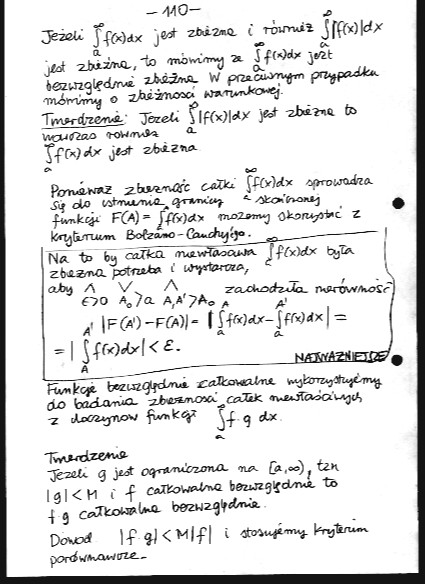 – 110 –
Jeżeli ∫_a^∞ f(x)dx jest zbieżna i również ∫_a^∞ |f(x)|dx
jest zbieżna, to mówimy że ∫_a^∞ f(x)dx jest
bezwzględnie zbieżna W przeciwnym przypadku
mówimy o zbieżności warunkowej.
Twierdzenie: Jeżeli ∫_a^∞ |f(x)|dx jest zbieżna to
wówczas również
∫_a^∞ f(x)dx jest zbieżna
Ponieważ zbieżność całki ∫_a^∞ f(x)dx sprowadza
się do istnienia granicy skończonej
funkcji F(A) = ∫_a^A f(x)dx możemy skorzystać z
kryterium Bolzano-Cauchy'ego.
Na to by całka niewłaściwa ∫_a^∞ f(x)dx była
zbieżna potrzeba i wystarcza,
aby ⋀_{ε>0} ⋁_{A₀>a} ⋀_{A,A'>A₀} zachodziła nierówność
|F(A') – F(A)| = |∫_a^A f(x)dx – ∫_a^{A'} f(x)dx| =
= |∫_A^{A'} f(x)dx| < ε.
NAJWAŻNIEJSZE
Funkcje bezwzględnie całkowalne wykorzystujemy
do badania zbieżności całek niewłaściwych
z iloczynów funkcji ∫_a^∞ f·g dx.
Twierdzenie
Jeżeli g jest ograniczona na [a,∞), tzn
|g| < M i f całkowalna bezwzględnie to
f g całkowalna bezwzględnie.
Dowód |f g| < M|f| i stosujemy kryterium
porównawcze –